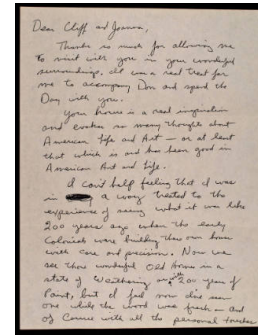 Dear Cliff and Joanna,
Thanks so much for allowing me
to visit with you in your wonderful
surroundings, it was a real treat for
me to accompany Don and spend the
Day with you.
Your house is a real inspiration
and evokes so many thoughts about
American life and Art — or at least
that which is and has been good in
American Art and life.
I can't help feeling that I was
in a way treated to the
experience of seeing what it was like
200 years ago when the early
Colonists were building their own homes
with care and precision. Now we
see those wonderful Old Homes in a
state of Weathering with 200 years of
Paint, but I feel now I've seen
one while the wood was fresh — and
of course with all the personal touches